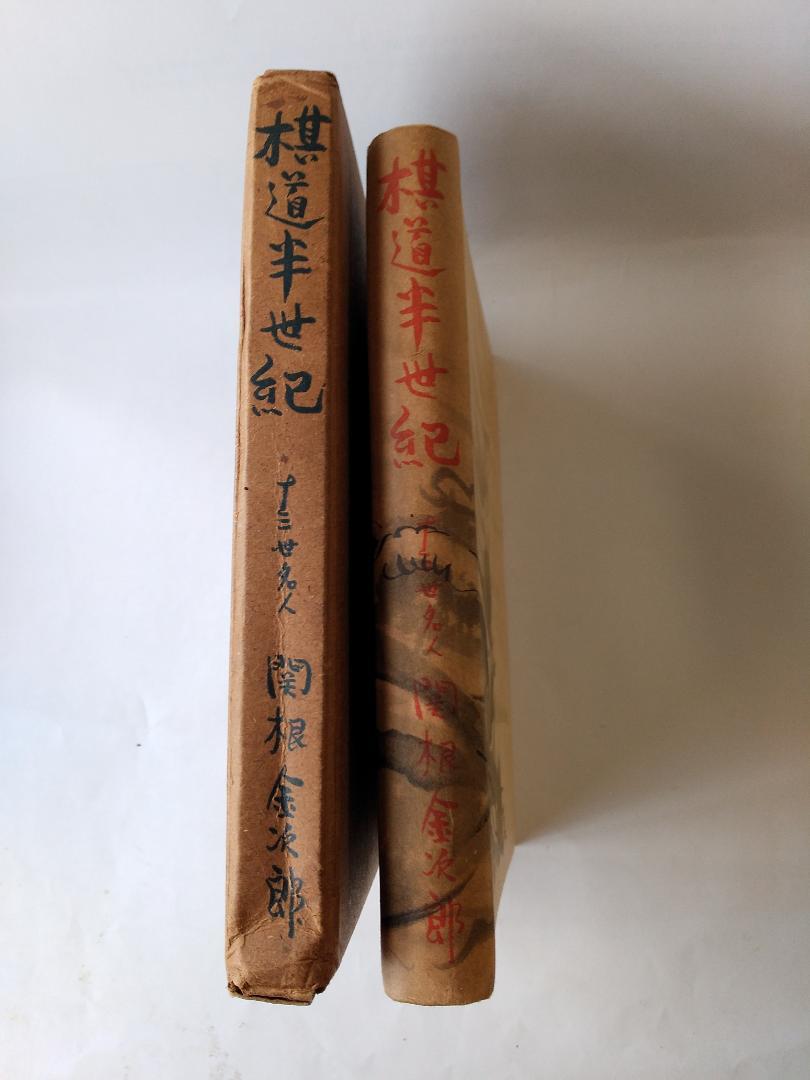 棋道半世紀
十三世名人
関根金次郎
棋道半世紀
十三世名人
関根金次郎